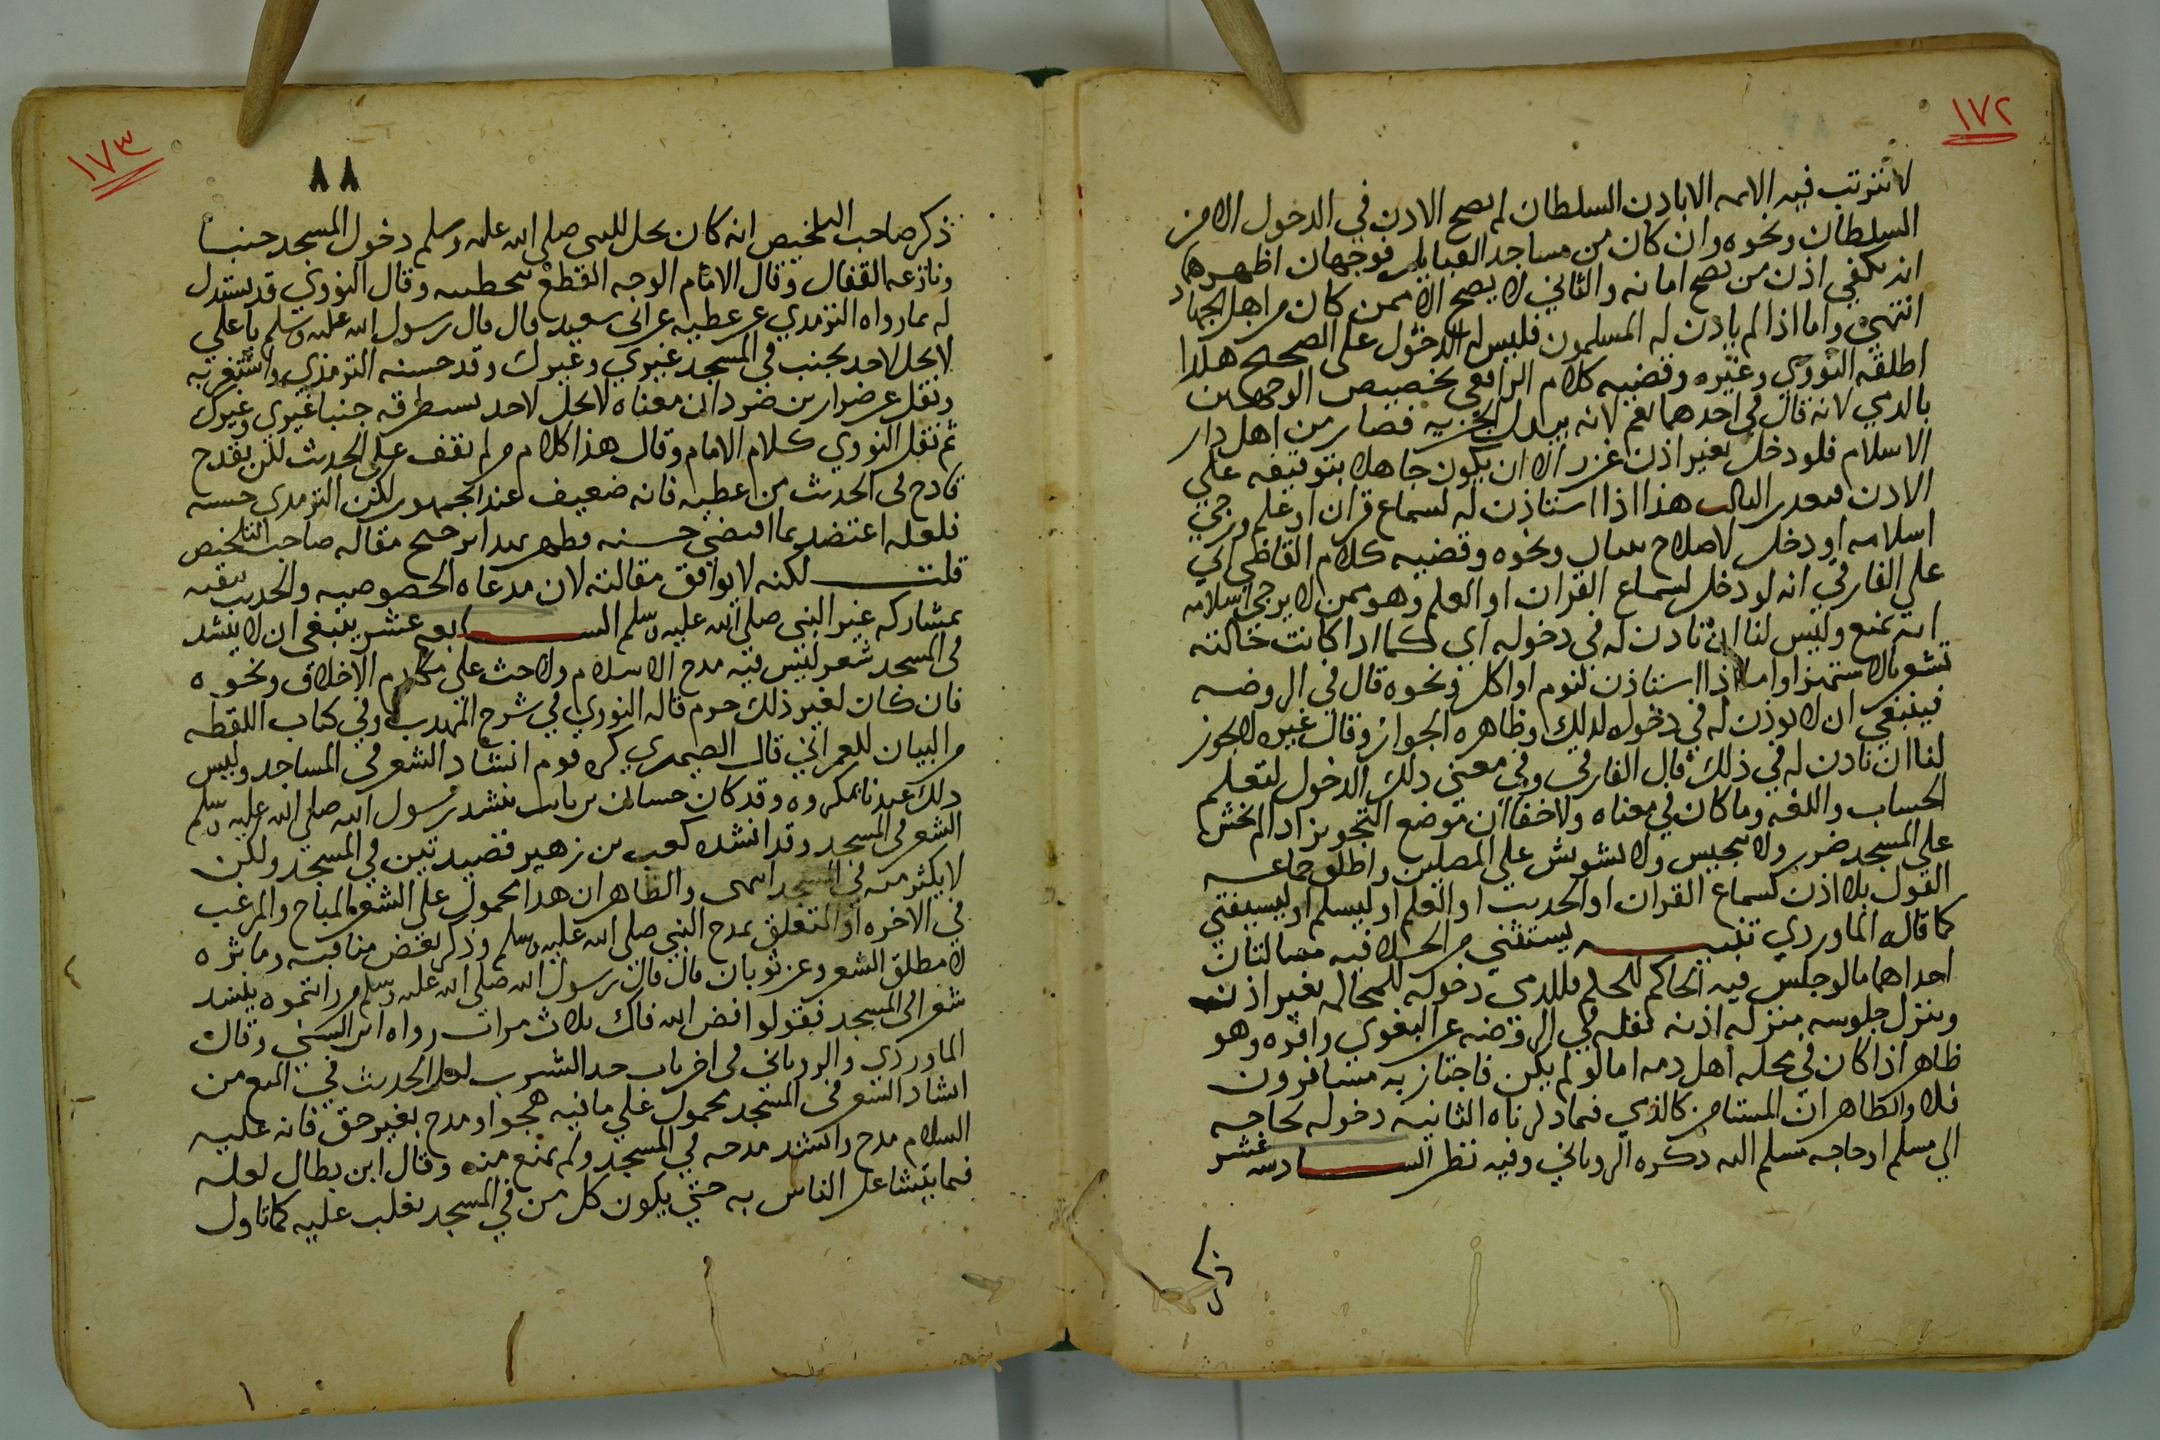 ١٧٢
لا تترتب فيه الايمه الا باذن السلطان لم يصح الاذن في الدخول الا من
السلطان ونحوه وان كان من مساجد القبايل فوجهان اظهرهما
انه يكفي اذن من يصح امانه والثاني لا يصح الا ممن كان من اهل الجهاد
انتهى واما اذا لم ياذن له المسلمون فليس له الدخول على الصحيح هكذا
اطلقه النووي وغيره وقضيه كلام الرافعي تخصيص الوجهين
بالذمي لانه قال في احدهما نعم لانه ببذل الجزيه فصار من اهل دار
الاسلام فلو دخل بغير اذن عزر الا ان يكون جاهلا بتوقيفه على
الاذن فيعذر الثالث هذا اذا استاذن له لسماع قران او علم ورجي
اسلامه او دخل لاصلاح بنيان ونحوه وقضيه كلام القاضي ابي
علي الفارقي انه لو دخل لسماع القران او العلم وهو ممن لا يرجى اسلامه
انه يمنع وليس لنا ان ناذن له في دخوله اي كما اذا كانت حالته
تشعر بالاستهزا واما اذا استاذن لنوم او اكل ونحوه قال في الروضه
فينبغي ان لا يوذن له في دخوله لذلك وظاهره الجواز وقال غيره لا يجوز
لنا ان ناذن له في ذلك قال الفارقي وفي معنى ذلك الدخول لتعلم
الحساب واللغه وما كان في معناه ولا خفا ان موضع التجويز اذا لم يخش
على المسجد ضرر ولا تنجيس ولا تشويش على المصلين واطلق جماعه
القول بلا اذن لسماع القران او الحديث او العلم او ليسلم او ليستفتي
كما قاله الماوردي تنبيه يستثنى من الخلاف فيه مسالتان
احداهما ما لو جلس فيه الحاكم للحكم فللذمي دخوله للمحاكمه بغير اذن
وينزل جلوسه منزله اذنه نقله في الروضه عن البغوي واقره وهو
ظاهر اذا كان في محله اهل ذمه اما لو لم يكن فاجتاز به مسافرون
فلا والظاهر ان المستامن كالذمي فيما ذكرناه الثانيه دخوله لحاجه
الى مسلم او حاجه مسلم اليه ذكره الروياني وفيه نظر السادسه عشر
ذكر
١٧٣
٨٨
ذكر صاحب التلخيص انه كان يحل للنبي صلى الله عليه وسلم دخول المسجد جنبا
ونازعه القفال وقال الامام الوجه القطع بتخطيته وقال النووي قد يستدل
له بما رواه الترمذي عن عطيه عن ابي سعيد قال قال رسول الله عليه وسلم يا علي
لا يحل لاحد يجنب في المسجد غيري وغيرك وقد حسنه الترمذي واستغربه
ونقل عن ضرار بن صرد ان معناه لا يحل لاحد يستطرقه جنبا غيري وغيرك
ثم نقل النووي كلام الامام وقال هذا كلام من لم يقف على الحديث لكن يقدح
قادح في الحديث من عطيه فانه ضعيف عند الجمهور لكن الترمذي حسنه
فلعله اعتضد بما اقتضي حسنه فظهر بهذا ترجيح مقاله صاحب التلخيص
قلت لكنه لا يوافق مقالته لان مدعاه الخصوصيه والحديث يقتضيه
بمشاركه غير النبي صلى الله عليه وسلم السابعه عشر ينبغي ان لا ينشد
في المسجد شعر ليس فيه مدح الاسلام ولا حث على مكارم الاخلاق ونحوه
فان كان لغير ذلك حرم قاله النووي في شرح المهذب وفي كتاب اللقطه
من البيان للعمراني قال الصيمري كره قوم انشاد الشعر في المساجد وليس
ذلك عندنا بمكروه وقد كان حسان بن ثابت ينشد رسول الله صلى الله عليه وسلم
الشعر في المسجد وقد انشده كعب بن زهير قصيدتين في المسجد ولكن
لا يكثر منه في المسجد انتهى والظاهر ان هذا محمول على الشعر المباح والمرغب
في الاخره او المتعلق بمدح النبي صلى الله عليه وسلم وذكر بعض مناقبه وماثره
لا مطلق الشعر وعن ثوبان قال قال رسول الله صلى الله عليه وسلم من رايتموه ينشد
شعرا في المسجد فقولوا فض الله فاك ثلاث مرات رواه ابن السني وقال
الماوردي والروياني في اخر باب حد الشرب لعل الحديث في المنع من
انشاد الشعر في المسجد محمول على ما فيه هجوا ومدح بغير حق فانه عليه
السلام مدح وانشد مدحه في المسجد ولم يمنع منه وقال ابن بطال لعله
فيما يتشاغل الناس به حتى يكون كل من في المسجد يغلب عليه كما تاول